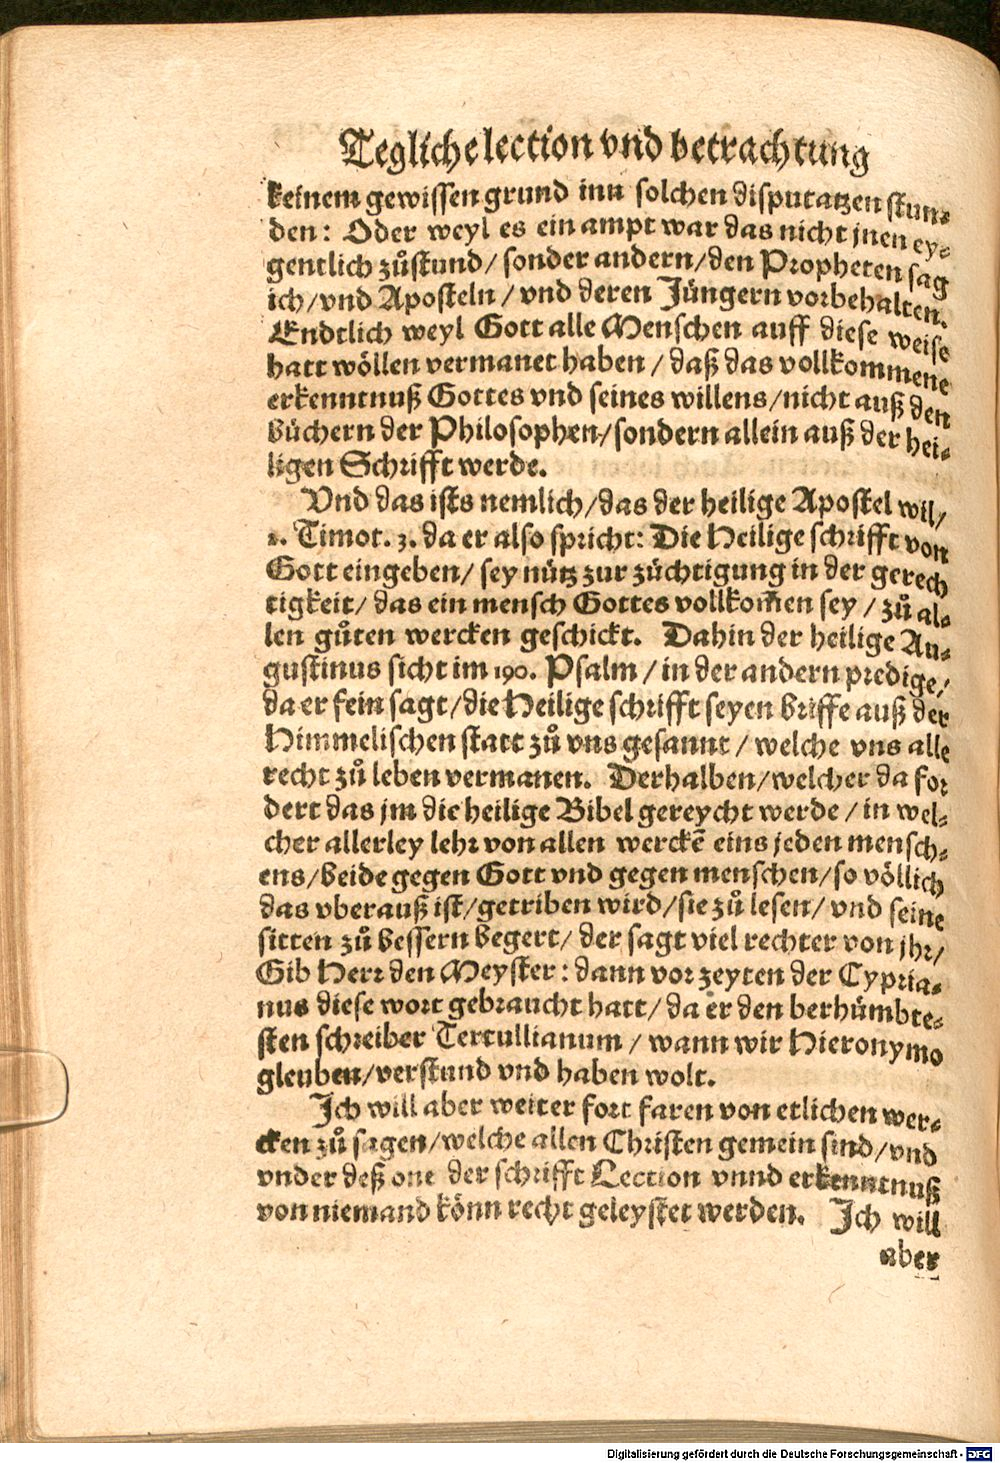 Tegliche lection vnd betrachtung
keinem gewissen grund inn solchen disputatzen stun-
den: Oder weyl es ein ampt war das nicht jnen ey-
gentlich zů stund/ sonder andern/ den Propheten sag
ich/ vnd Aposteln/ vnd deren Jüngern vorbehalten.
Endtlich weyl Gott alle Menschen auff diese weise
hatt wöllen vermanet haben/ daß das vollkommene
erkenntnuß Gottes vnd seines willens/ nicht auß den
büchern der Philosophen/ sondern allein auß der hei-
ligen Schrifft werde.
Vnd das ists nemlich/ das der heilige Apostel wil/
2. Timot. 3. da er also spricht: Die Heilige schrifft von
Gott eingeben/ sey nütz zur züchtigung in der gerech
tigkeit/ das ein mensch Gottes vollkom̄en sey/ zů al-
len gůten wercken geschickt. Dahin der heilige Au-
gustinus sicht im 190. Psalm/ in der andern predige/
da er fein sagt/ die Heilige schrifft seyen briffe auß der
Himmelischen statt zů vns gesannt/ welche vns alle
recht zů leben vermanen. Derhalben/ welcher da for
dert das jm die heilige Bibel gereycht werde/ in wel-
cher allerley lehr von allen werckē eins jeden mensch-
ens/ beide gegen Gott vnd gegen menschen/ so völlich
das vberauß ist/ getriben wird/ sie zů lesen/ vnd seine
sitten zů bessern begert/ der sagt viel rechter von jhr/
Gib Herr den Meyster: dann vor zeyten der Cypria-
nus diese wort gebraucht hatt/ da er den berhümbte-
sten schreiber Tertullianum/ wann wir Hieronymo
gleuben/ verstund vnd haben wolt.
Ich will aber weiter fort faren von etlichen wer-
cken zů sagen/ welche allen Christen gemein sind/ vnd
vnder deß one der schrifft Lection vnnd erkenntnuß
von niemand könn recht geleystet werden. Ich will
aber
Digitalisierung gefördert durch die Deutsche Forschungsgemeinschaft - DFG